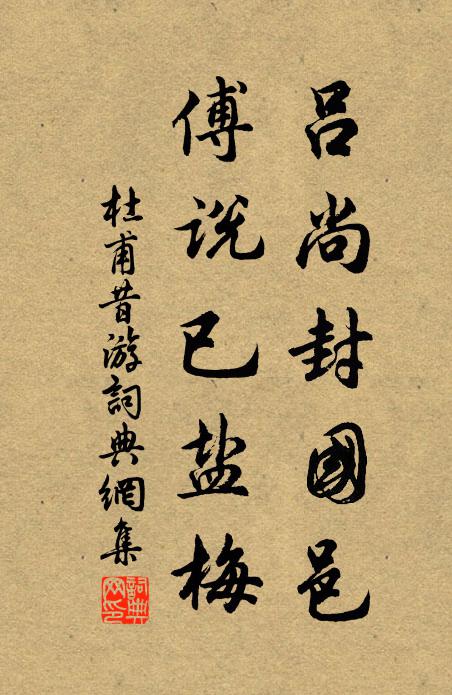 吕尚封國邑
傅说已盐梅
杜甫昔游詞典網集
詞典网印